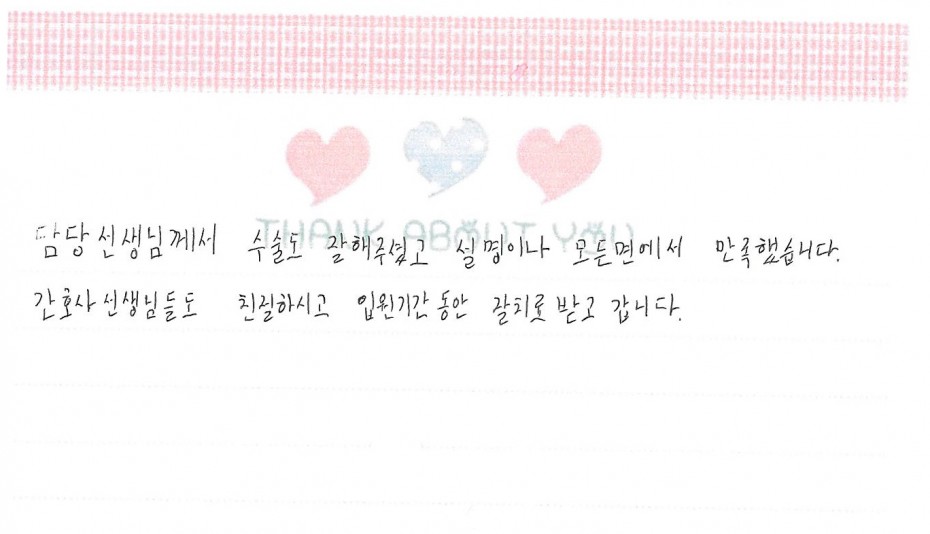 THANK ABOUT YOU
담당선생님께서 수술도 잘해주셨고 설명이나 모든면에서 만족했습니다.
간호사선생님들도 친절하시고 입원기간동안 잘치료받고 갑니다.